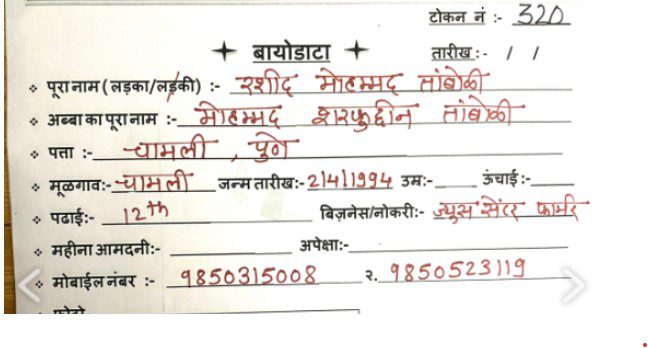 टोकन नं :- 320
बायोडाटा
तारीख :- / /
पूरा नाम (लड़का/लड़की) :- रशीद मोहम्मद तांबोळी
अब्बा का पूरा नाम :- मोहम्मद शरफुद्दीन तांबोळी
पत्ता :- चामली , पुणे
मूळगाव:- चामली जन्म तारीख:- 2/4/1994 उम्र:- ऊंचाई:-
पढाई:- 12th बिज़नेस/नोकरी:- ज्युस सेंटर फार्मर
महीना आमदनी:- अपेक्षा:-
मोबाईल नंबर :- 9850315008 २. 9850523119